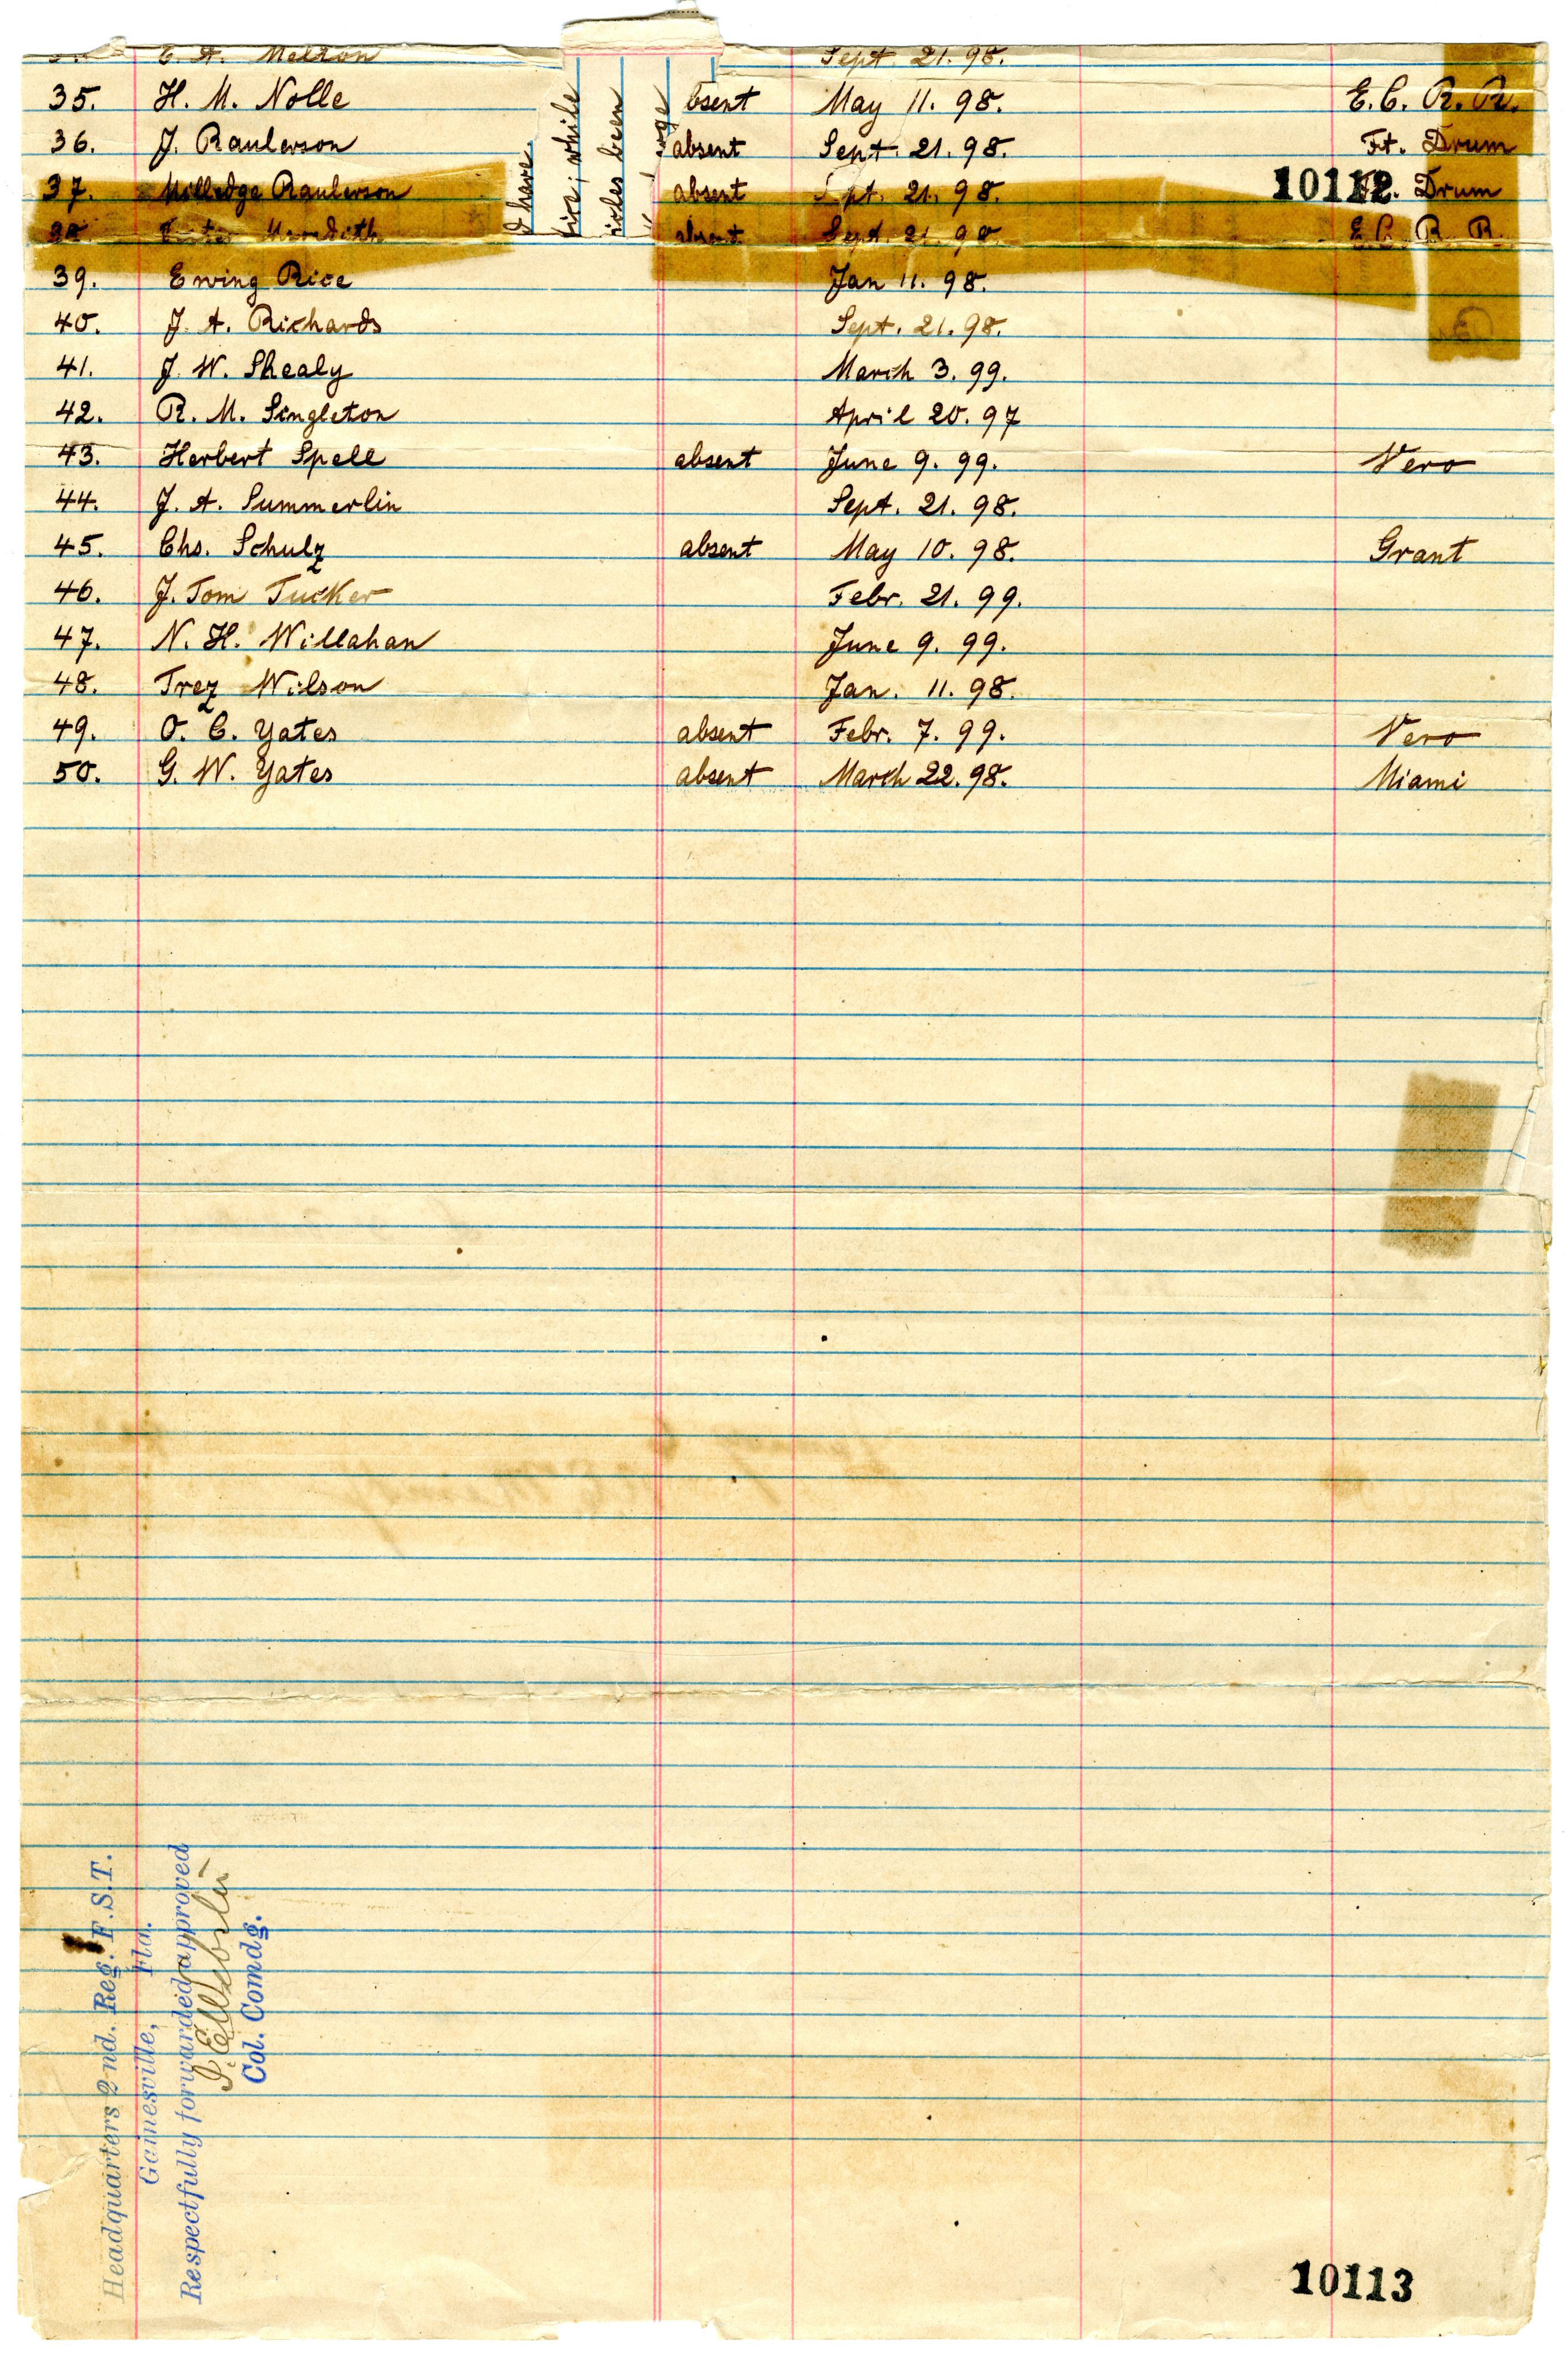 E. A. Melton Sept 21. 98.
35. H. M. Nolle bsent May 11. 98. E. C. R. R.
36. J. Raulerson absent Sept. 21. 98. Ft. Drum
37. Milledge Raulerson absent pt. 21. 98. Drum
10112
38. Meredith absent Sept. 21. 98 E. C. R. R.
I have
fire; while
been
39. Ewing Rice Jan 11. 98.
40. J. A. Richards Sept. 21. 98.
41. J. W. Shealy March 3. 99.
42. R. M. Singleton April 20. 97
43. Herbert Spell absent June 9. 99. Vero
44. J. A. Summerlin Sept. 21. 98.
45. Chs. Schulz absent May 10. 98. Grant
46. J. Tom Tucker Febr. 21. 99.
47. N. H. Willahan June 9. 99.
48. Trez Wilson Jan. 11. 98.
49. O. C. Yates absent Febr. 7. 99. Vero
50. G. W. Yates absent March 22. 98. Miami
Headquarters 2nd. Reg. F.S.T.
Gainesville, Fla.
Respectfully forwarded approved
Col. Comdg.
10113